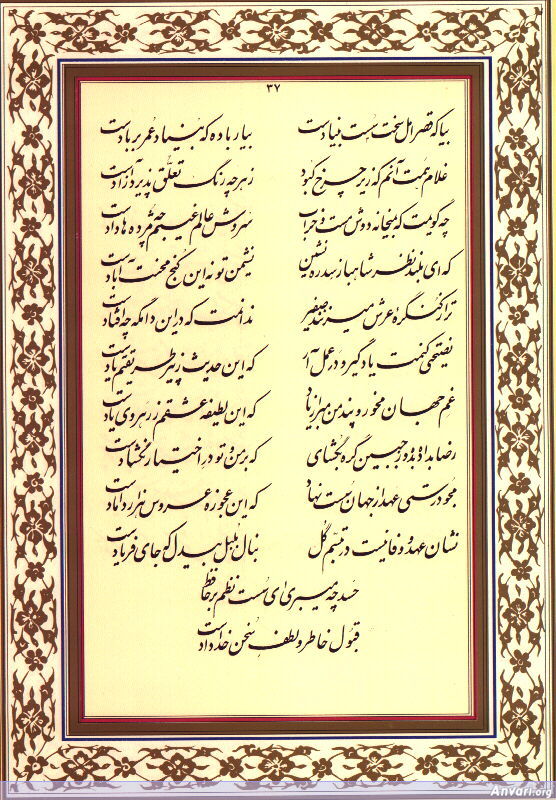 ۳۷
بیا که قصر امل سخت سست بنیادست بیار باده که بنیاد عمر بر بادست
غلام همت آنم که زیر چرخ کبود ز هر چه رنگ تعلق پذیرد آزادست
چه گویمت که بمیخانه دوش مست و خراب سروش عالم غیبم چه مژده ها دادست
که ای بلند نظر شاهباز سدره نشین نشیمن تو نه این کنج محنت آبادست
ترا ز کنگرهٔ عرش میزنند صفیر ندانمت که درین دامگه چه افتادست
نصیحتی کنمت یاد گیر و در عمل آر که این حدیث ز پیر طریقتم یادست
غم جهان مخور و پند من مبر از یاد که این لطیفهٔ عشقم ز رهروی یادست
رضا بداده بده وز جبین گره بگشای که بر من و تو در اختیار نگشادست
مجو درستی عهد از جهان سست نهاد که این عجوزه عروس هزار دامادست
نشان عهد و وفا نیست در تبسم گل بنال بلبل بیدل که جای فریادست
حسد چه میبری ای سست نظم بر حافظ
قبول خاطر و لطف سخن خدادادست
Anvari.org